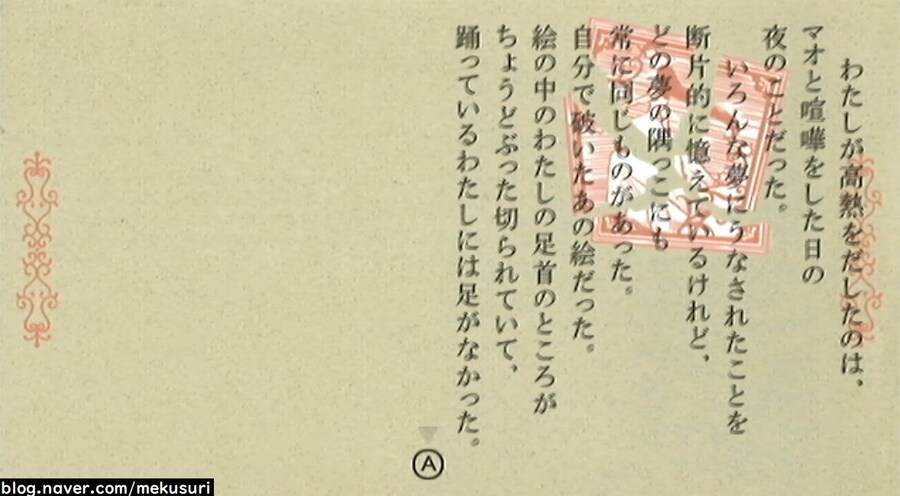 わたしが高熱をだしたのは、
マオと喧嘩をした日の
夜のことだった。
いろんな夢にうなされたことを
断片的に憶えているけれど、
どの夢の隅っこにも
常に同じものがあった。
自分で破いたあの絵だった。
絵の中のわたしの足首のところが
ちょうどぶった切られていて、
踊っているわたしには足がなかった。
A
blog.naver.com/mekusuri